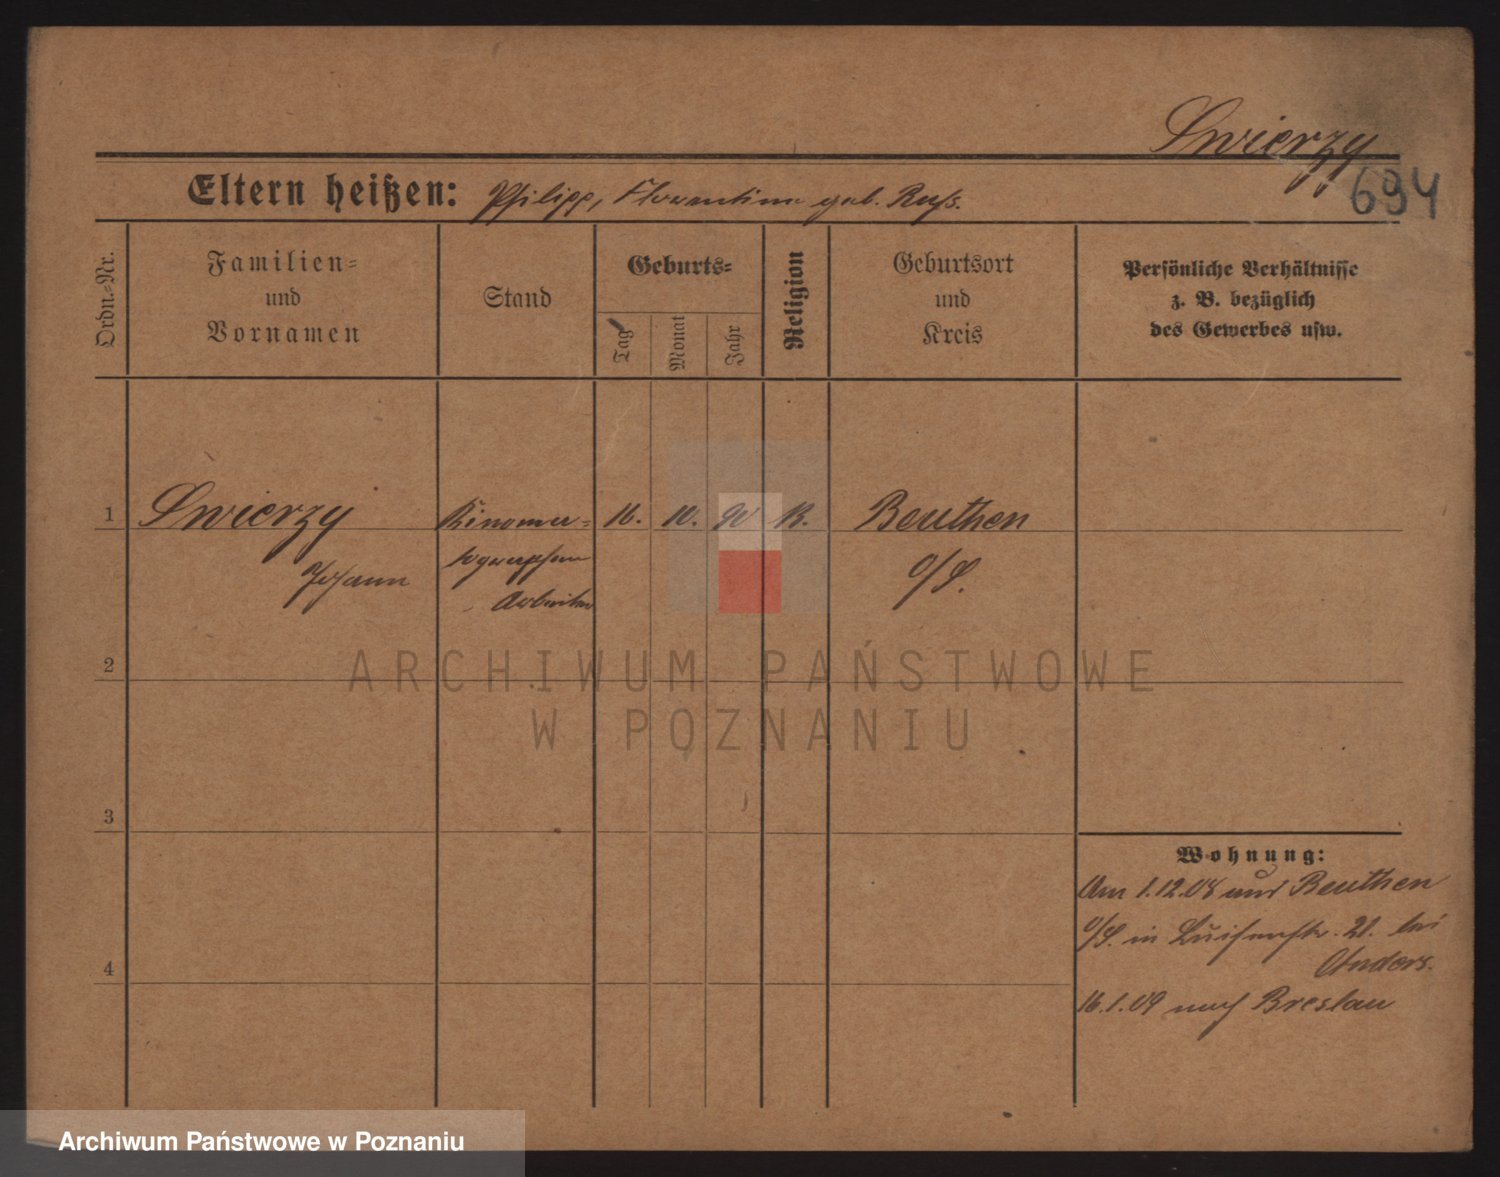 Swierzy
694
Eltern heißen: Philipp, Florentine geb. Russ.
Ordn.=Nr.
Familien=
und
Vornamen
Stand
Geburts=
Tag
Monat
Jahr
Religion
Geburtsort
und
Kreis
Persönliche Verhältnisse
z. B. bezüglich
des Gewerbes usw.
1 Swierzy 16. 10. 90 K. Beuthen
Johann o/S.
Arbeiter
2
3
4
Wohnung:
Am 1.12.08 aus Beuthen
o/S. in Luisenstr. 21. bei
Anders.
16.1.09 nach Breslau
ARCHIWUM PAŃSTWOWE
W POZNANIU
Archiwum Państwowe w Poznaniu